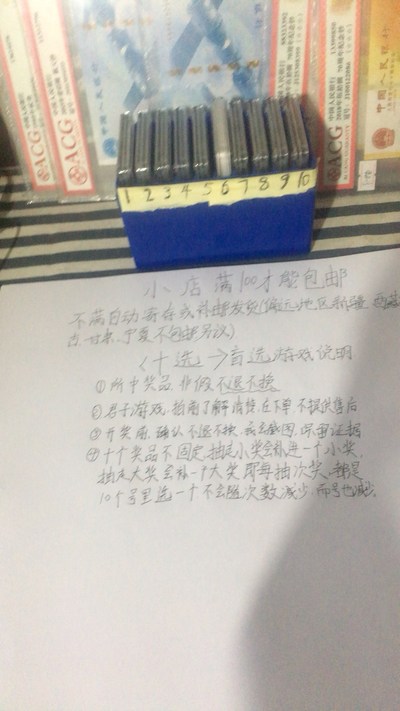 ACG
ACG
ACG
ACG
中国人民银行
中国人民银行
1 2 3 4 5 6 7 8 9 10
小店满100才能包邮
不满自动寄存或补邮发货(偏远地区新疆 西藏
古、甘肃、宁夏不包邮另议)
<十选一>盲选游戏说明
①所中奖品 非假不退不换
②属于游戏、拍前了解清楚在下单不提供售后
③开奖后、确认不退不换、截图、保留证据
④十个奖品不固定、抽走小奖会补进一个小奖、
抽走大奖会补一个大奖即每抽次奖、都是
10个号里选一个不会随次数减少、而号也减少.